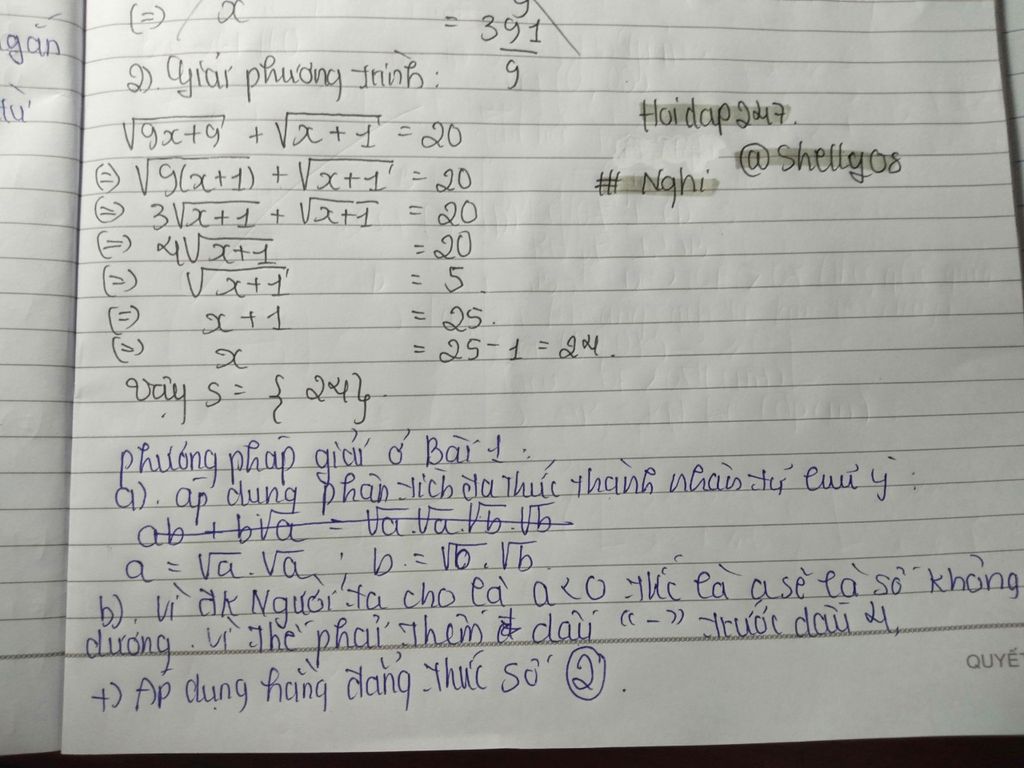 gắn
từ
(=) x = 391
9
2). Giải phương trình:
√9x+9 + √x+1 = 20
Hoidap247.
@Shelly08
# Nghi
(=) √9(x+1) + √x+1 = 20
(=) 3√x+1 + √x+1 = 20
(=) 4√x+1 = 20
(=) √x+1 = 5.
(=) x+1 = 25.
(=) x = 25-1 = 24.
Vậy S = { 24}.
phương pháp giải ở Bài 1:
a). áp dụng phân tích đa thức thành nhân tử lưu ý:
ab + b√a = √a.√a.√b.√b
a = √a.√a, b = √b.√b
b). Vì đk Người ta cho là a<0 tức là a sẽ là số không
dương. Vì thế phải thêm dấu "-" trước dấu 4,
+) Áp dụng hằng đẳng thức số ②.
QUYẾT